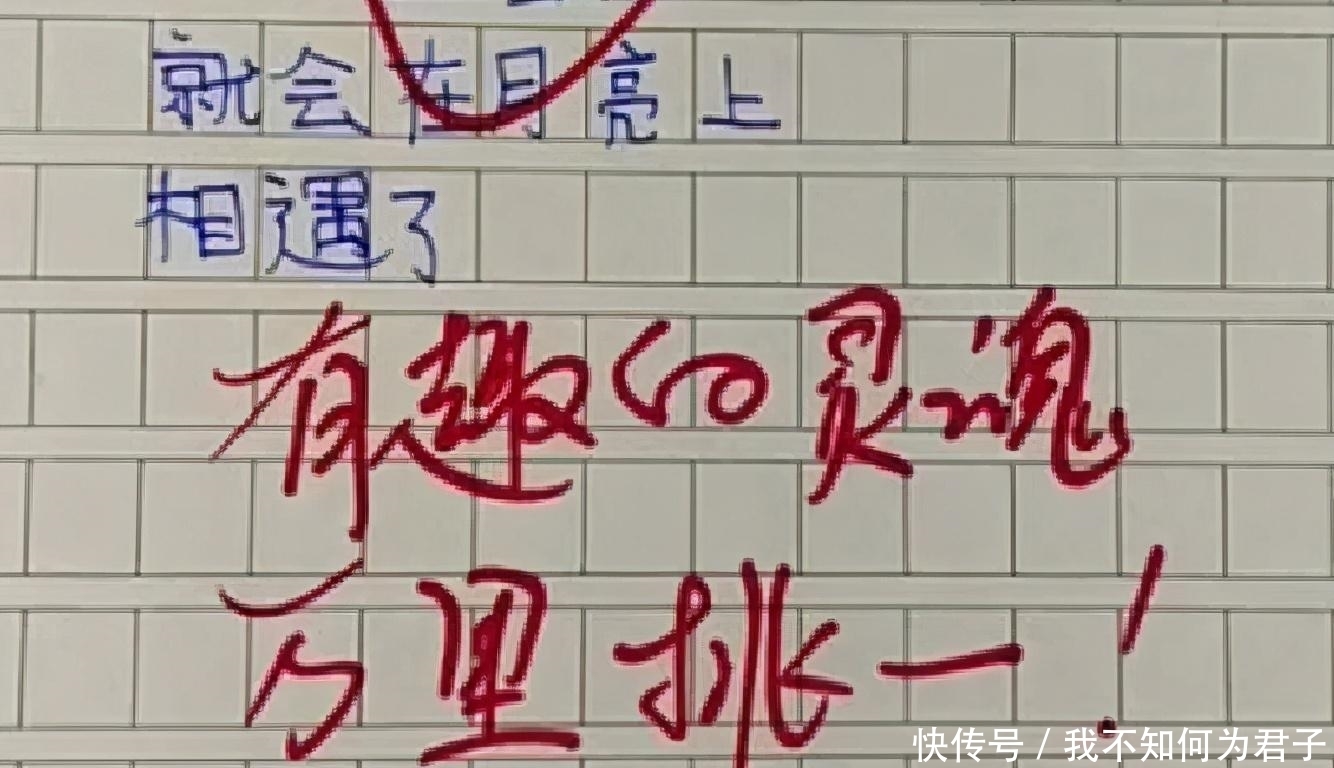 就会在月亮上
相遇了
有趣的灵魂
万里挑一!
快传号 / 我不知何为君子